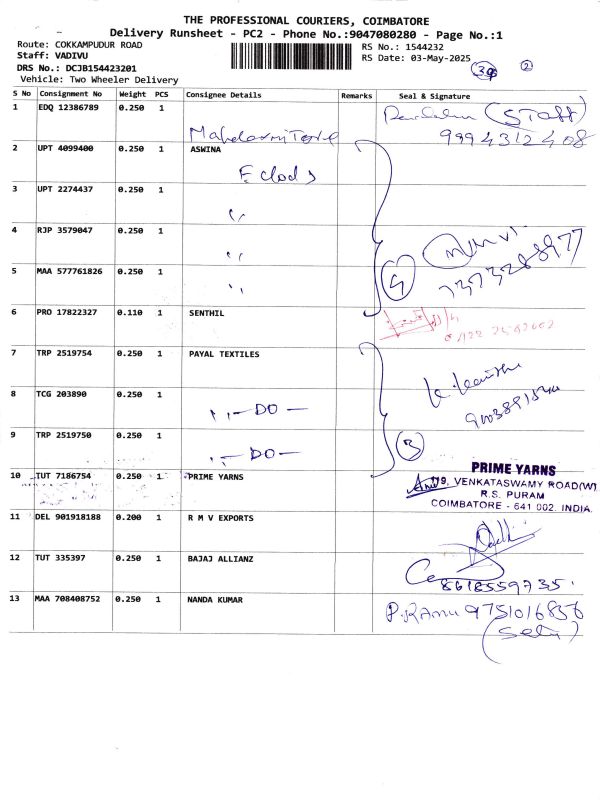 THE PROFESSIONAL COURIERS, COIMBATORE
Delivery Runsheet - PC2 - Phone No.:9047080280 - Page No.:1
Route: COKKAMPUDUR ROAD
Staff: VADIVU
DRS No.: DCJB154423201
Vehicle: Two Wheeler Delivery
RS No.: 1544232
RS Date: 03-May-2025
39 2
S No Consignment No Weight PCS Consignee Details Remarks Seal & Signature
1 EDQ 12386789 0.250 1 (Staff)
9994312408
2 UPT 4099400 0.250 1 ASWINA
3 UPT 2274437 0.250 1 "
4 RJP 3579047 0.250 1 "
5 MAA 577761826 0.250 1 "
5
7373288977
6 PRO 17822327 0.110 1 SENTHIL
7 TRP 2519754 0.250 1 PAYAL TEXTILES
8 TCG 203890 0.250 1 " - DO -
9 TRP 2519750 0.250 1 " - DO -
3
10 TUT 7186754 0.250 1 PRIME YARNS
PRIME YARNS
9, VENKATASWAMY ROAD(W)
R.S. PURAM
COIMBATORE - 641 002. INDIA.
11 DEL 901918188 0.200 1 R M V EXPORTS
12 TUT 335397 0.250 1 BAJAJ ALLIANZ
8618559735
13 MAA 708408752 0.250 1 NANDA KUMAR
P. Ramu 9751016856